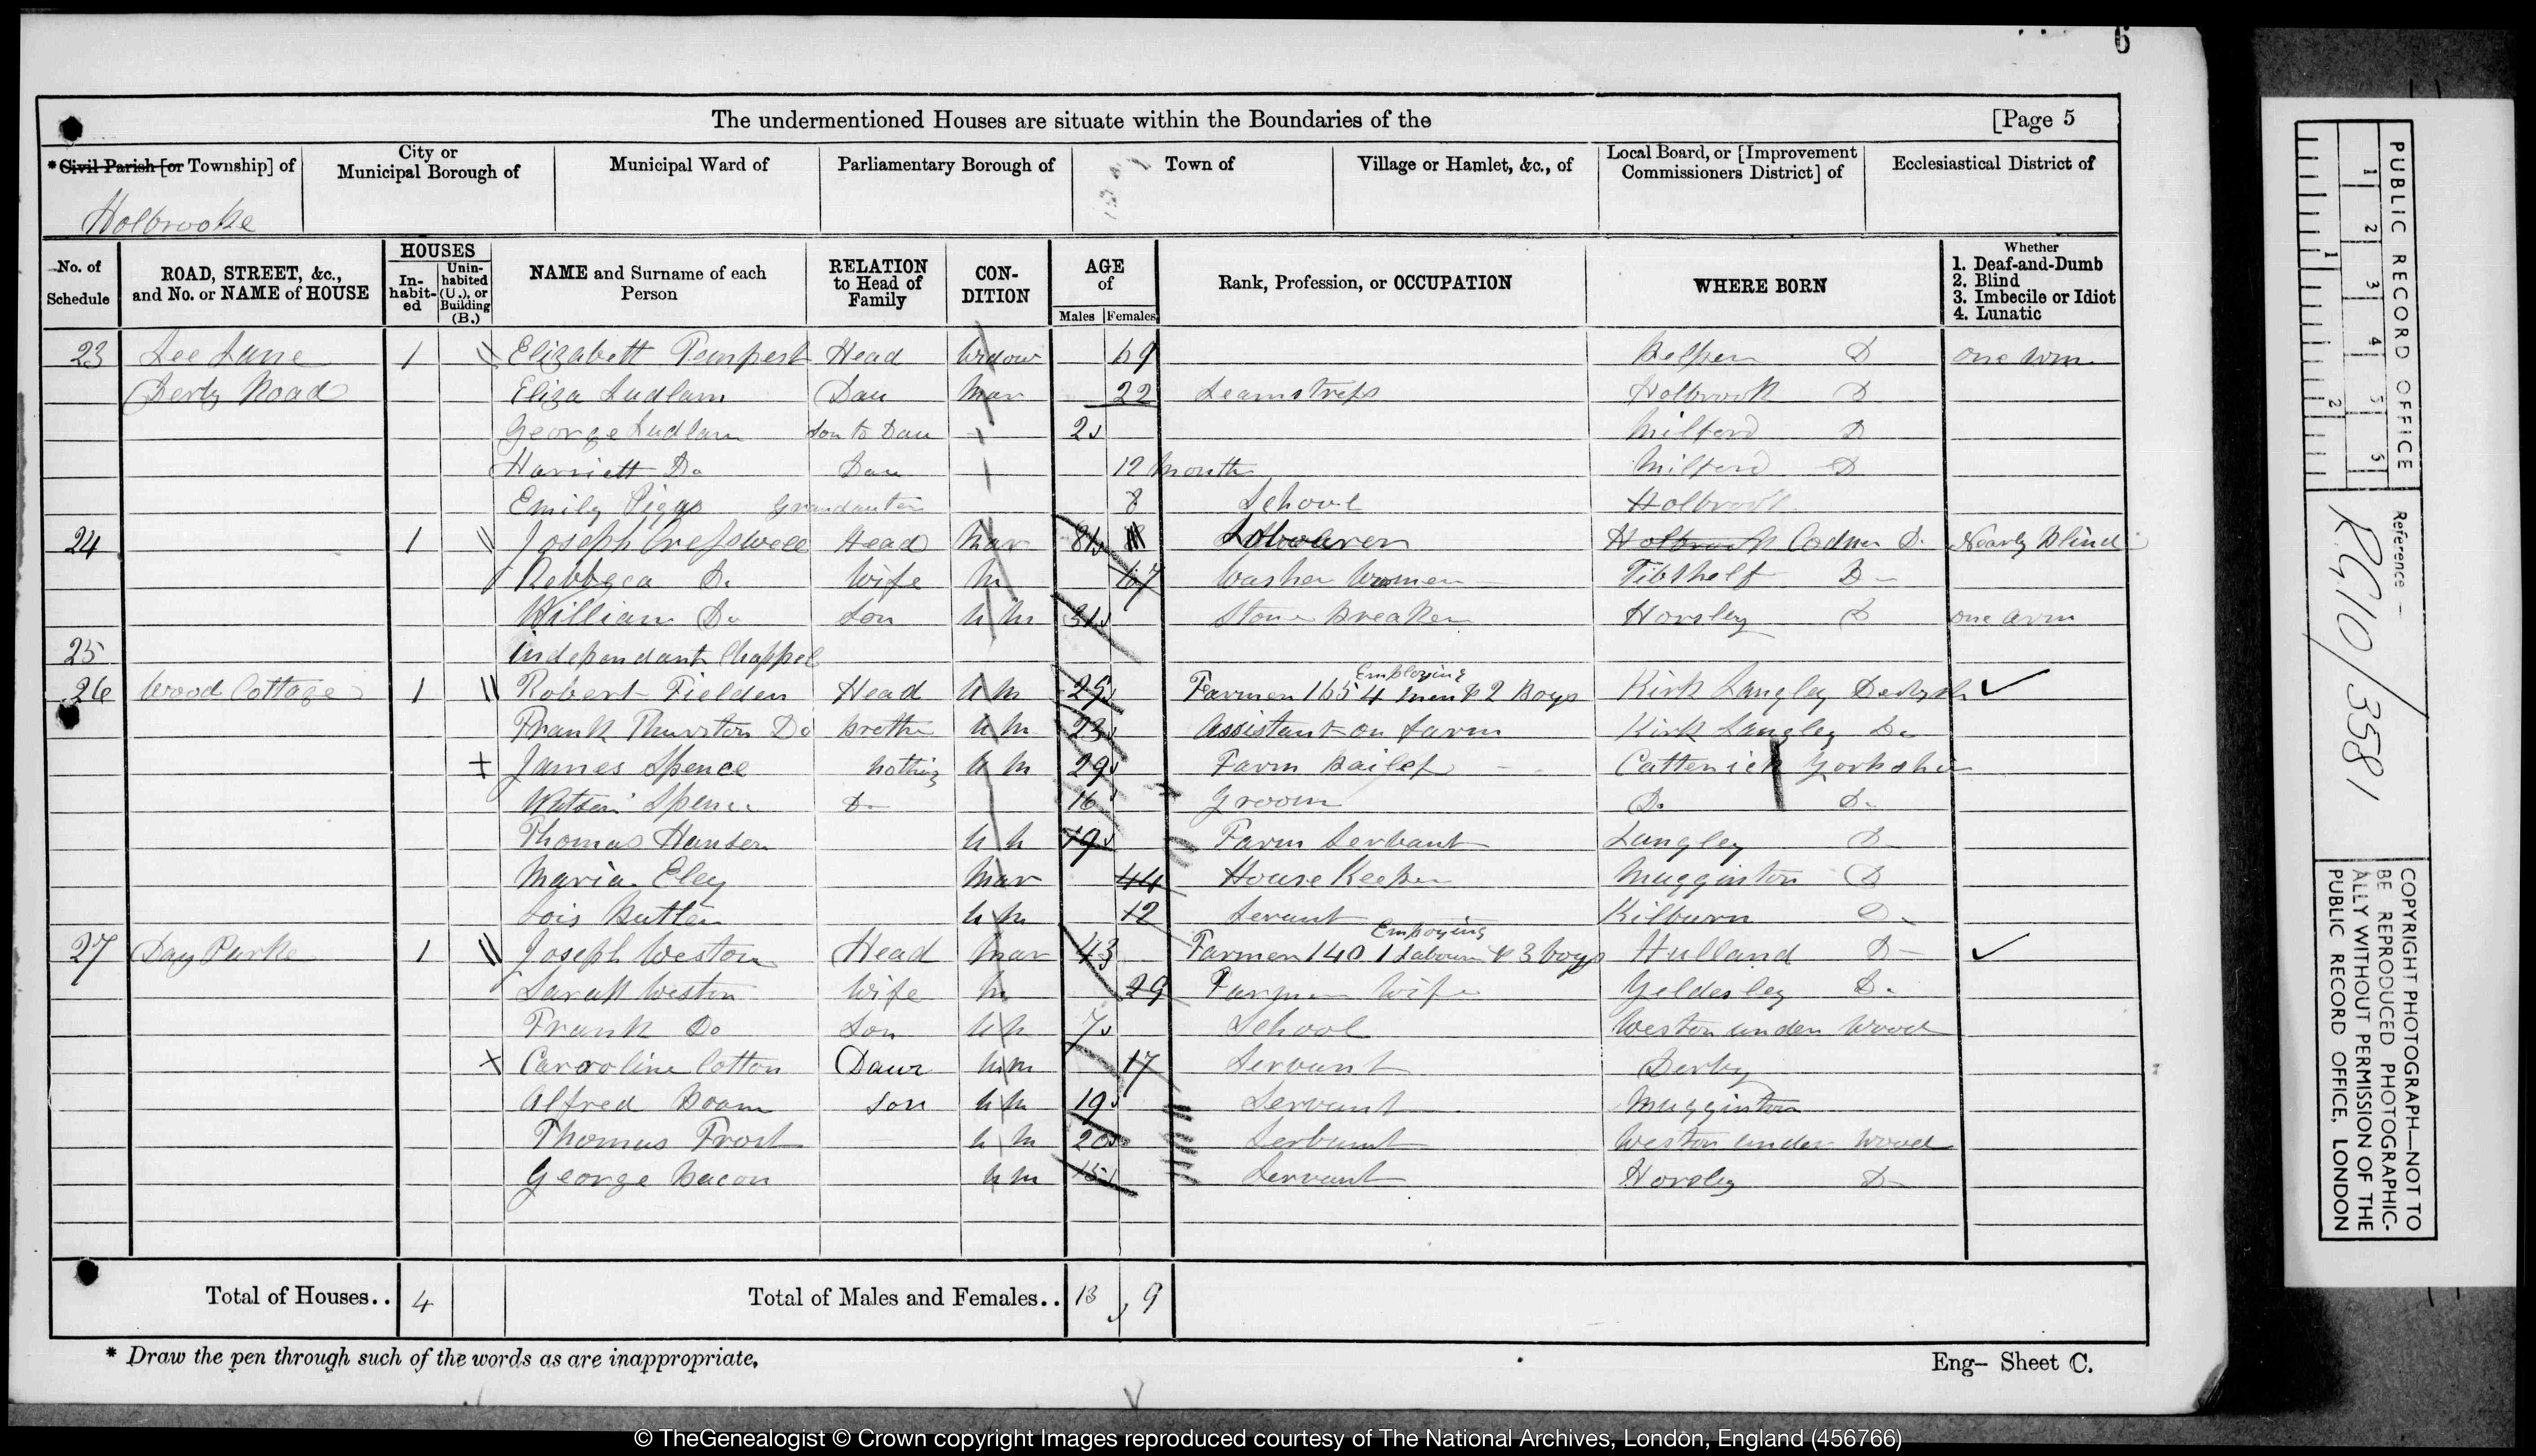 6
The undermentioned Houses are situate within the Boundaries of the [Page 5
* Civil Parish [or Township] of City or Municipal Borough of Municipal Ward of Parliamentary Borough of Town of Village or Hamlet, &c., of Local Board, or [Improvement Commissioners District] of Ecclesiastical District of
Holbrooke
No. of Schedule ROAD, STREET, &c., and No. or NAME of HOUSE HOUSES In-habit-ed Unin-habited (U.), or Building (B.) NAME and Surname of each Person RELATION to Head of Family CON-DITION AGE of Males Females Rank, Profession, or OCCUPATION WHERE BORN Whether 1. Deaf-and-Dumb 2. Blind 3. Imbecile or Idiot 4. Lunatic
23 Lee Lane 1 Elizabett Tempest Head Widow 69 Belper D one
Derby Road Eliza Ludlam Dau Mar 22 Seamstress Holbrook D
George Ludlam Son to Dau 2 Milford D
Harriett Do Dau 12 Month Milford D
Emily Piggs 8 School Holbrook
24 1 Joseph Cresswell Head Mar 81 Labourer Holbrook Codnor D. Nearly Blind
Rebbeca Do Wife M 67 Washer Women Tibshelf D
William Do Son U M 31 Stone Breaker Horsley D one arm
25 Independant Chappel
26 Wood Cottage 1 Robert Fielden Head U M 25 Farmer 165 Employing 4 Men & 2 Boys Kirk Langley Derbysh
Frank Thurston Do Brother U M 23 Assistant on farm Kirk Langley Do
James Spence nothing U M 29 Farm Bailef Catterick Yorkshir
Watson Spence D 16 Groom Do Do
Thomas Hanson 19 Farm Servant Langley D
Maria Eley Mar 44 House Keeper Mugginton D
Lois Butler U M 12 Servant Kilburn D
27 Day Parke 1 Joseph Weston Head Mar 43 Farmer 140 Employing 1 Labourer & 3 boys Hulland D
Sarah Weston Wife M 29 Farmers Wife Yeldersley D.
Frank Do Son 7 School Weston under Wood
Carroline Cotton Daur U M 17 Servant Derby
Alfred Boam Son U M 19 Servant Mugginton
Thomas Frost U M 20 Servant Weston under Wood
George Bacon U M 15 Servant Horsley D
Total of Houses.. 4 Total of Males and Females.. 13 9
* Draw the pen through such of the words as are inappropriate. Eng- Sheet C.
PUBLIC RECORD OFFICE
1 2 3 4 5
1 2
Reference
RG10/3581
COPYRIGHT PHOTOGRAPH—NOT TO
BE REPRODUCED PHOTOGRAPHIC-
ALLY WITHOUT PERMISSION OF THE
PUBLIC RECORD OFFICE, LONDON
© TheGenealogist © Crown copyright Images reproduced courtesy of The National Archives, London, England (456766)